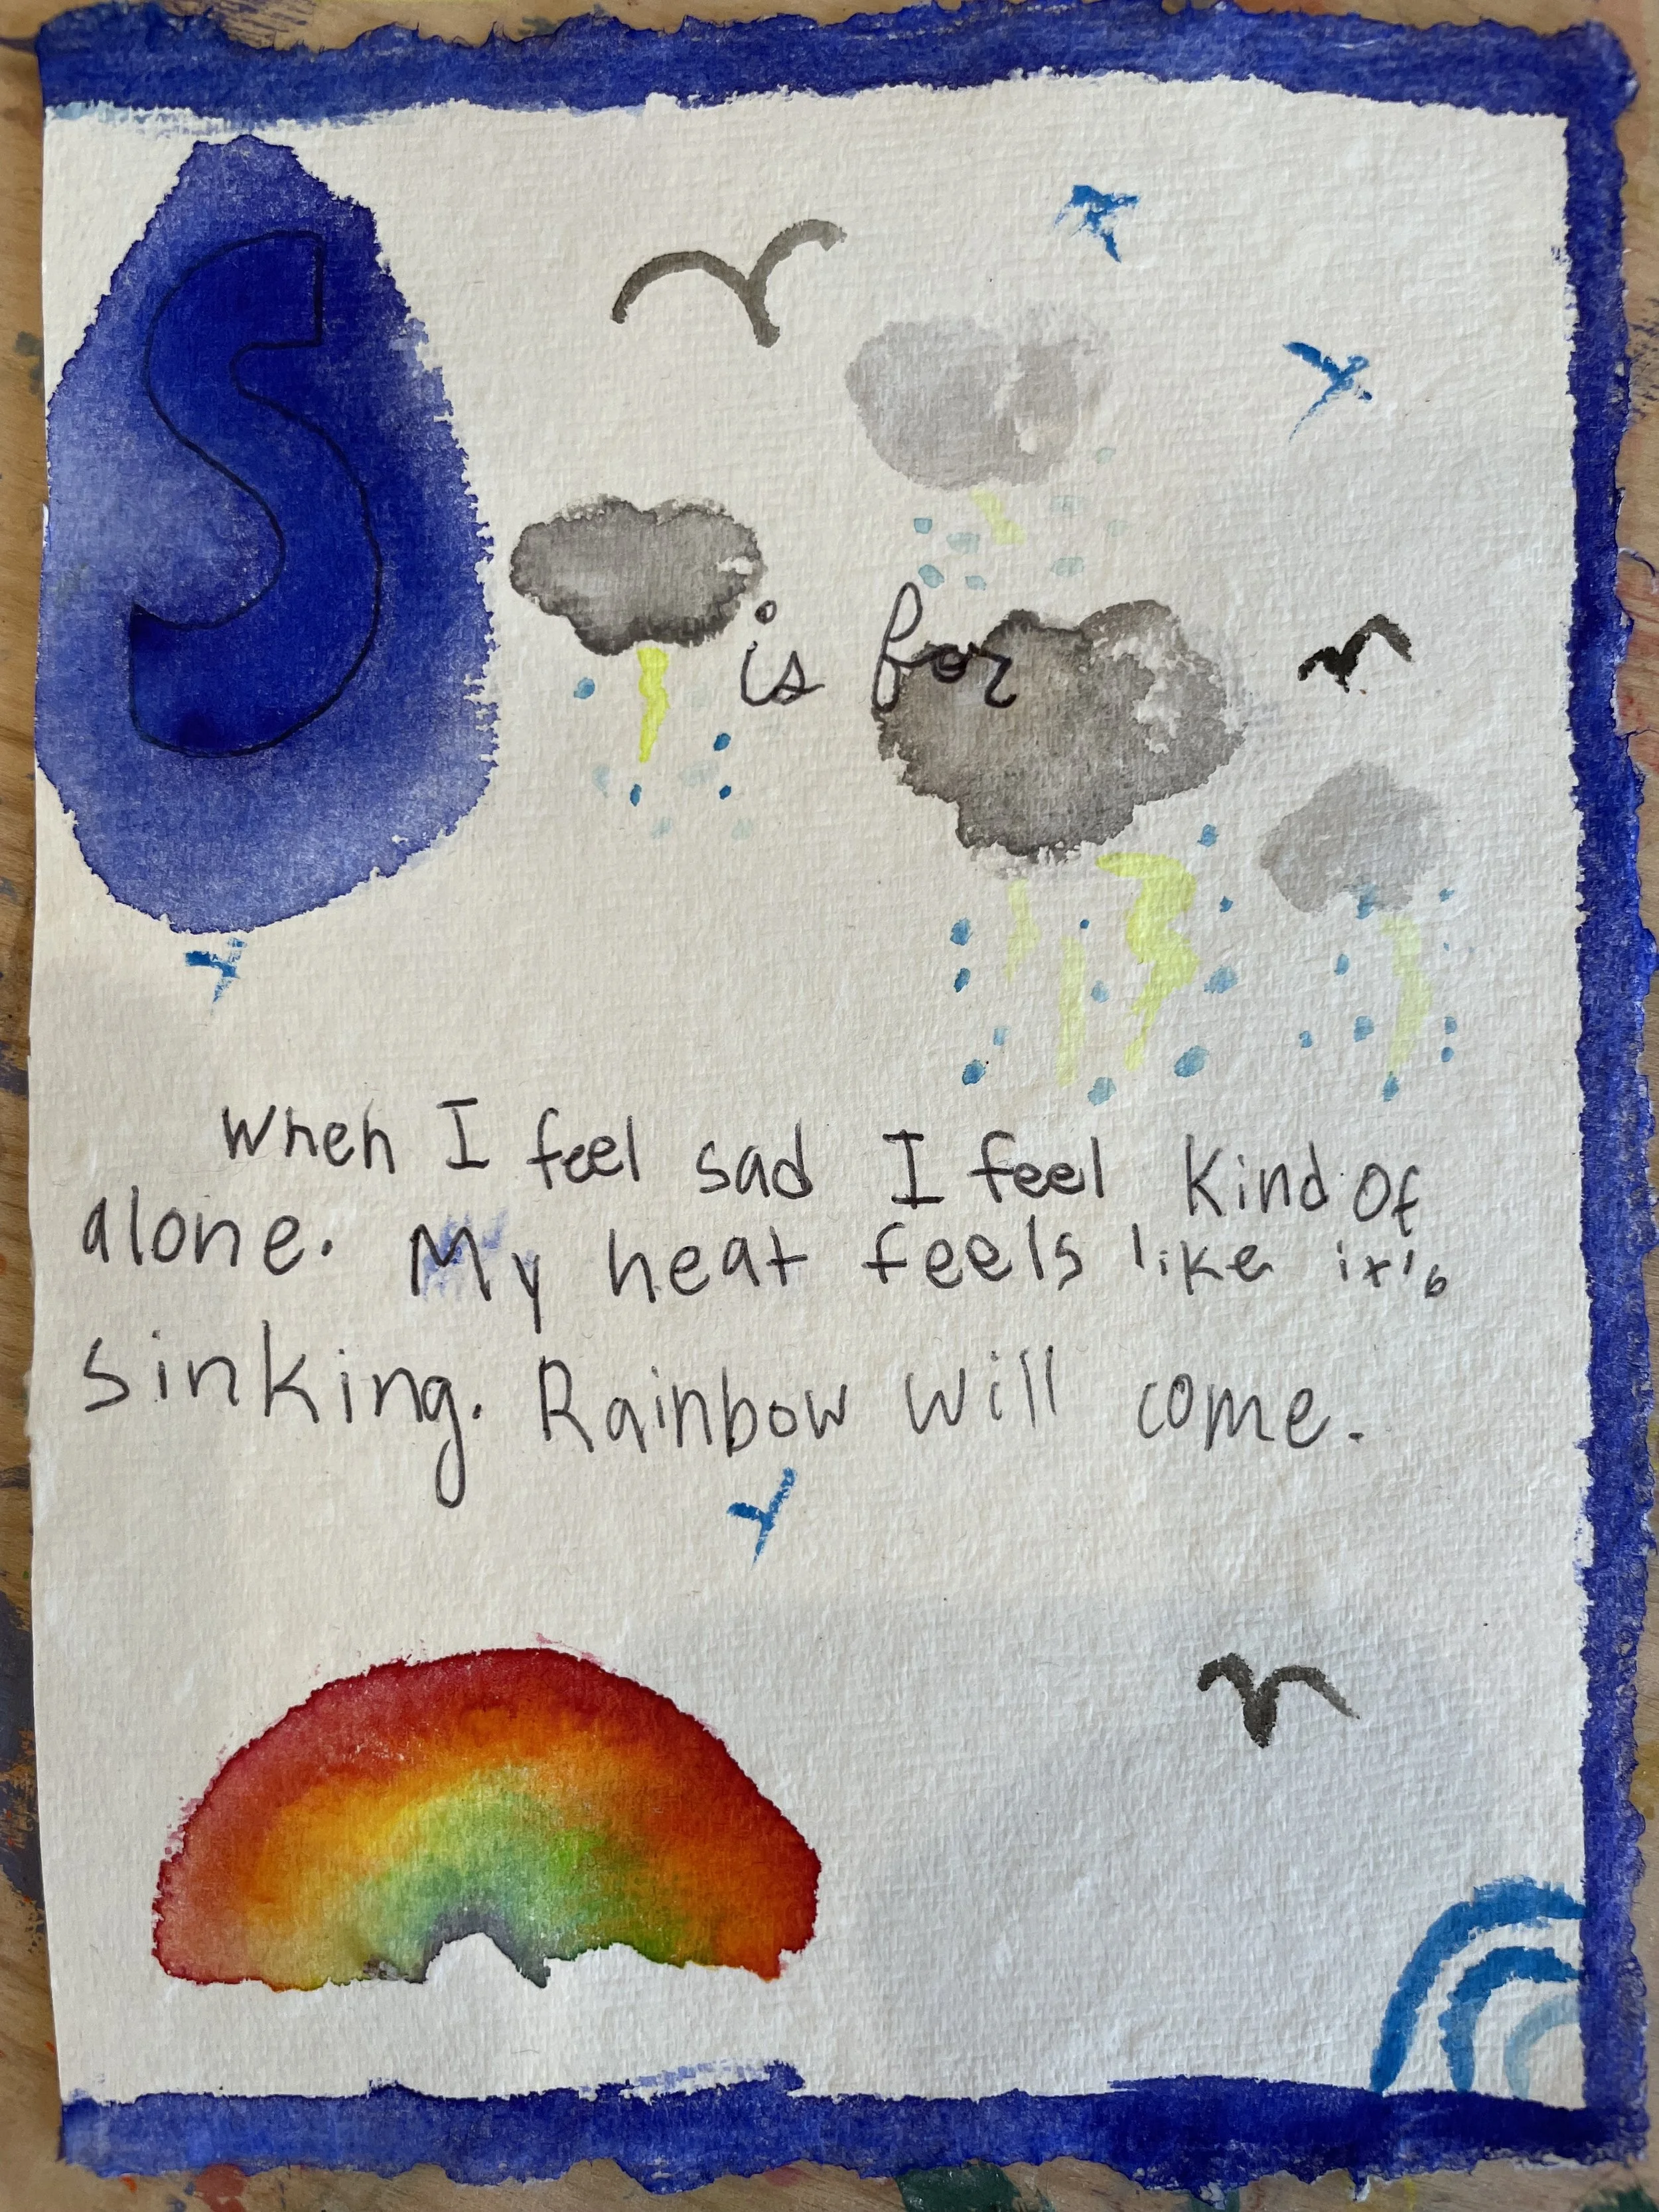 S
is for
When I feel sad I feel kind of
alone. My heat feels like it's
sinking. Rainbow will come.